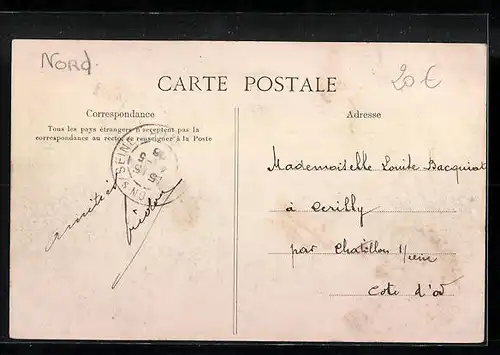 Nord
20 €
CARTE POSTALE
Correspondance
Tous les pays étrangers n'acceptent pas la
correspondance au recto, se renseigner à la Poste
Adresse
Mademoiselle Louise Bacquiat
à Cerilly
par Chatillon s/seine
Cote d'or
amitiés